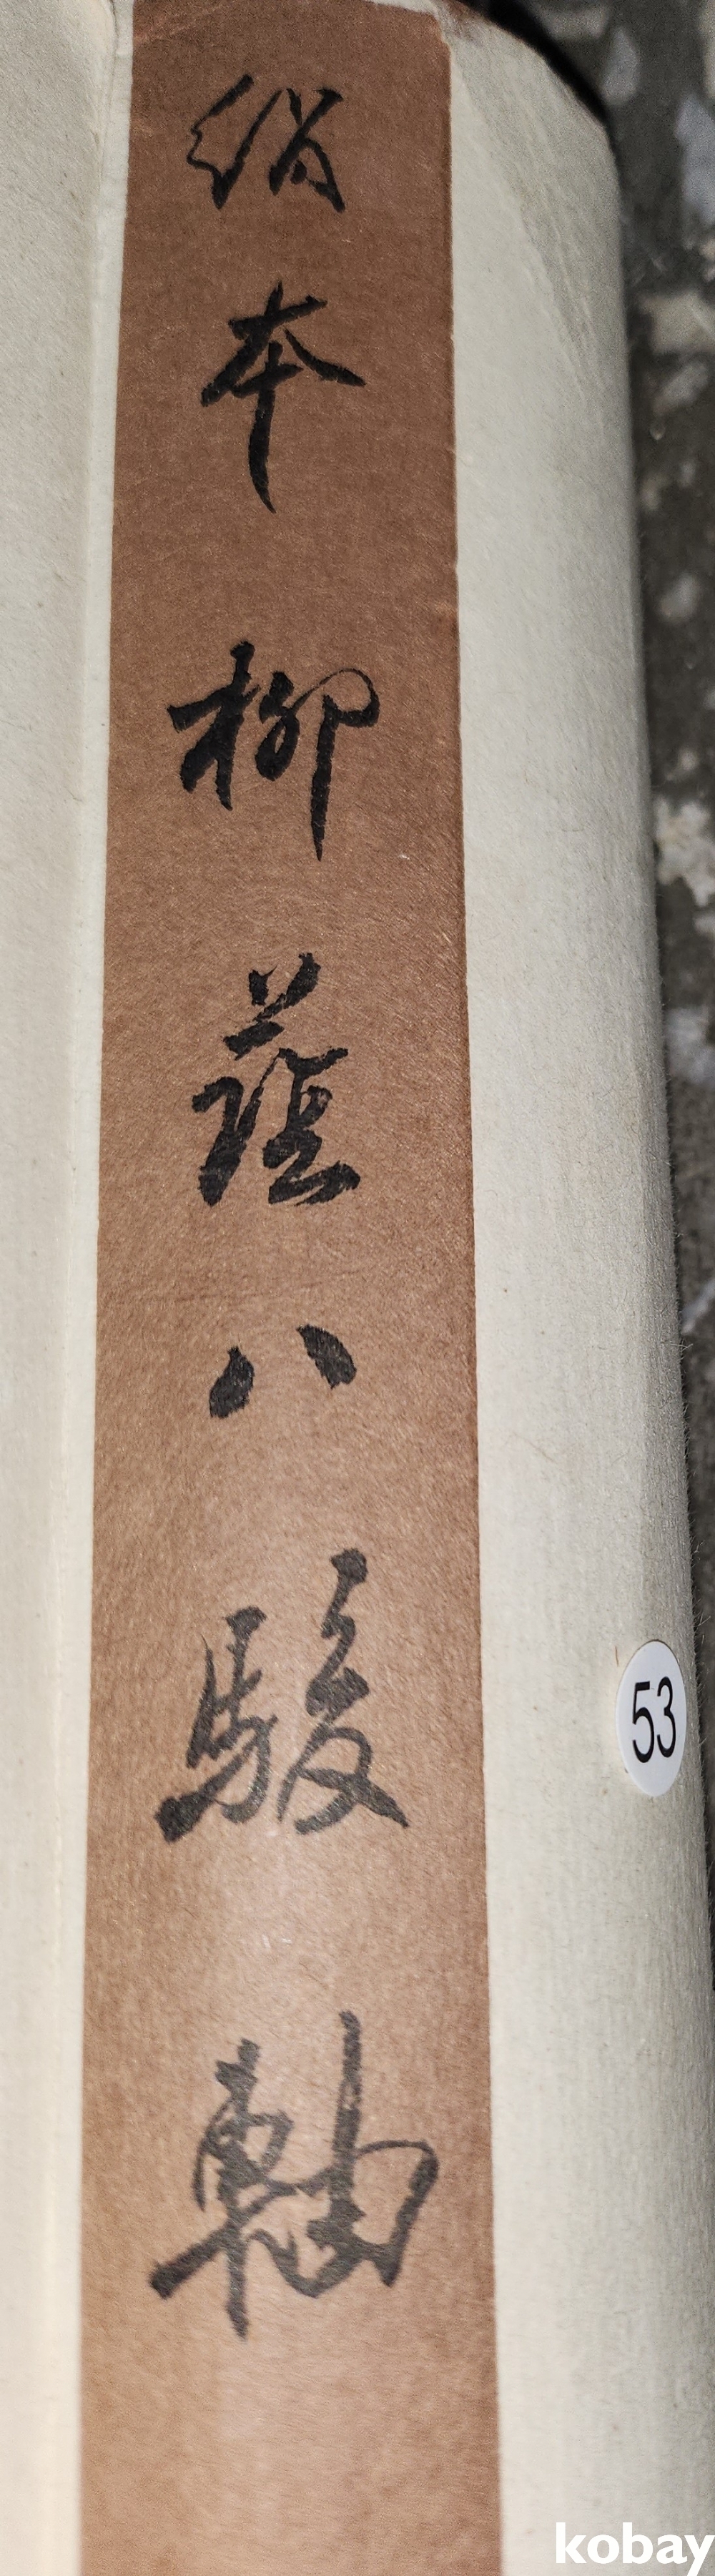 絹本 柳蔭八駿軸
53
kobay